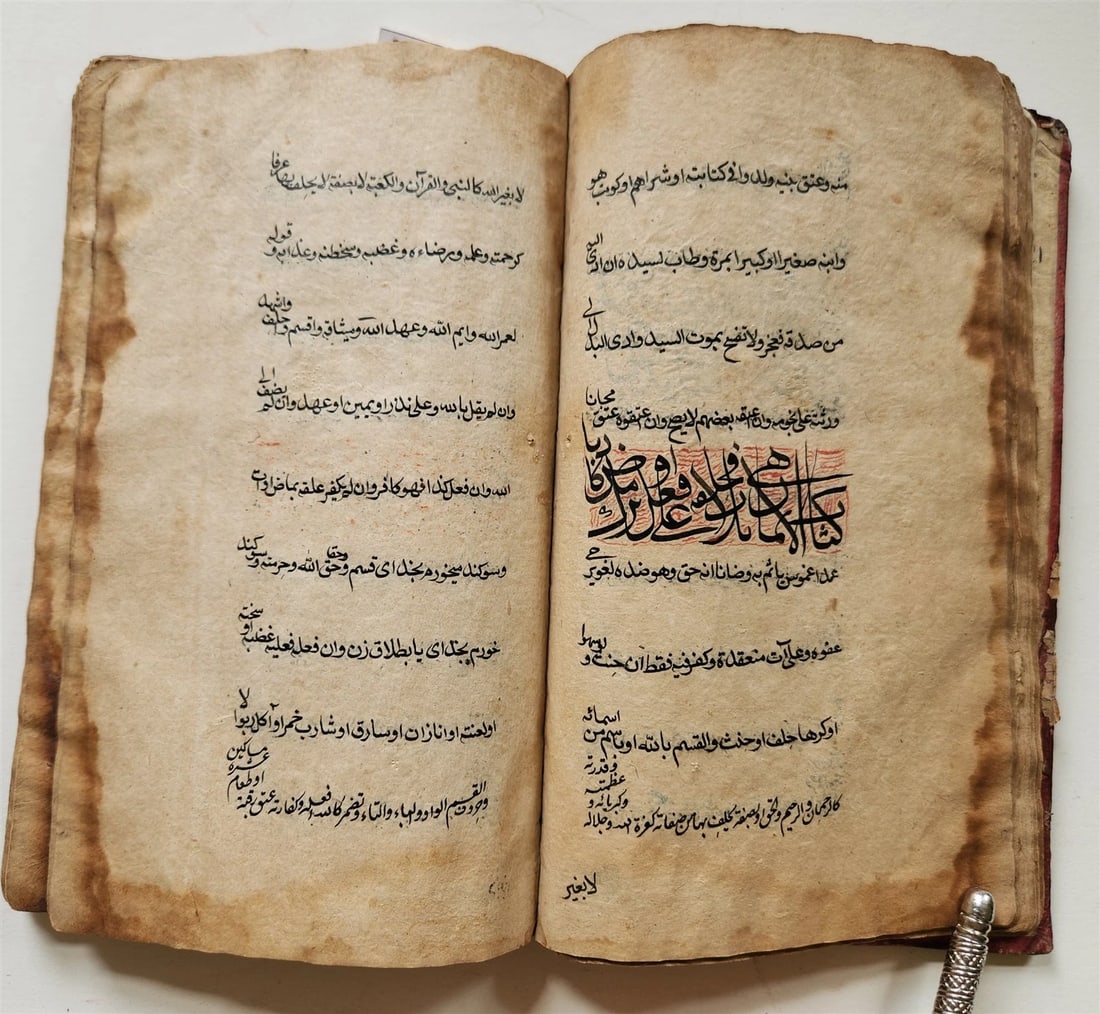 منه وعتق فيه ولد وافى كتابته او شراهم او كوتب هو
وابنه صغيرا او كبيرا بمرة وطاب لسيده ان ادى اليه
من صدقة فعجز ولا تفسخ بموت السيد وادى البدل الى
ورثته على نجومه وان اعتقه بعضهم لا يصح وان اعتقوه عتق مجانا
كتاب الايمان هى ثلاث فحلفه على فعل او ترك ماض كاذبا
عمدا غموس ياثم به وضانا انه حق وهو ضده لغو يرجى
عفوه وعلى آت منعقدة وكفر فيه فقط ان حنث ولو سهوا
او كرها حلف او حنث والقسم بالله او باسم من اسمائه
كالرحمان والرحيم والحق او بصفة يحلف بها من صفاته كعزة الله وجلاله وكبريائه وعظمته وقدرته
لا بغير
لا بغير الله كالنبى والقرآن والكعبة لا بصفة لا يحلف بها عرفا
كرحمته وعلمه ورضاءه وغضبه وسخطه وعذابه وقوله
لعمر الله وايم الله وعهد الله وميثاقه واقسم واحلف واشهد
وان لم يقل بالله وعلى نذر او يمين او عهد وان لم يضف الى
الله وان فعل كذا فهو كافر وان لم يكفر علقه بماض او آت
وسوكند ميخورم بخداى قسم وحقا وحق الله وحرمته وسوكند
خورم بخداى يا بطلاق زن وان فعله فعليه غضبه او سخطه
او لعنته او انا زان او سارق او شارب خمر او آكل ربوا لا
وحروف القسم الواو والباء والتاء وتضمر كالله افعله وكفارته عتق رقبة او طعام عشرة مساكين